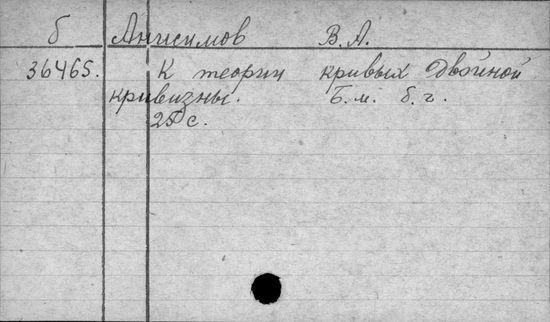 б Анисимов В.А.
36465. К теории кривых двойной
кривизны. Б.м. б.г.
25 с.